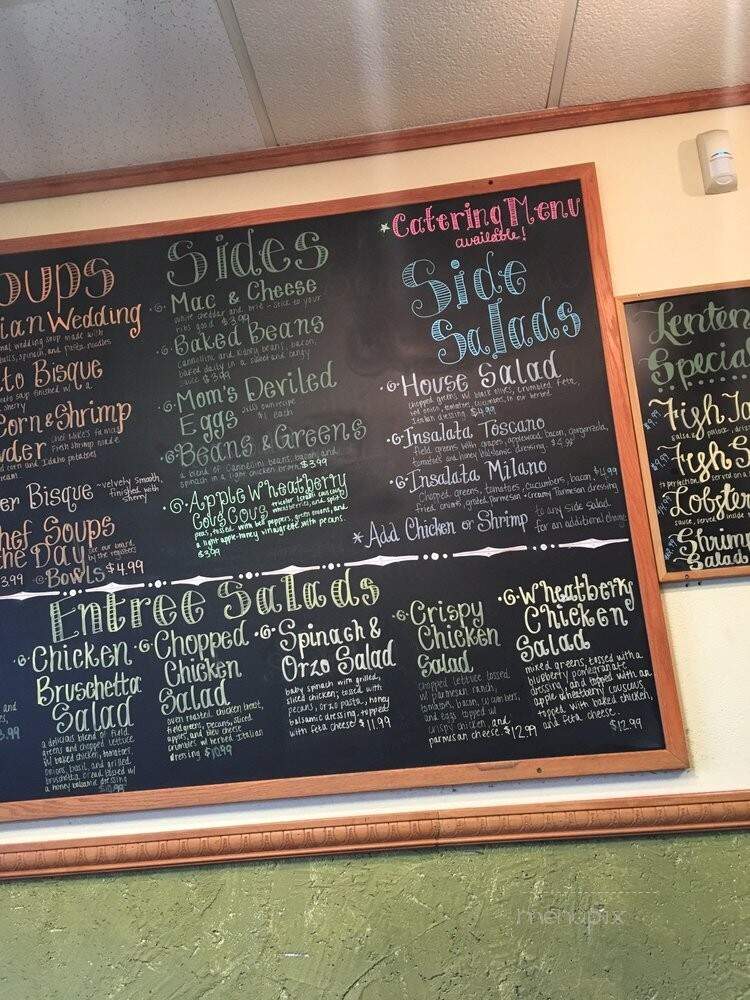 oups
ian Wedding
wedding soup made with
spinach, and pasta noodles
to Bisque
Corn & Shrimp
wder
Chef Mike's famous
fresh shrimp made
corn and Idaho potatoes
er Bisque ~velvety smooth,
finished with
sherry
hef Soups
he Day
see our board
by the registers
3.99 Bowls $4.99
Sides
·G· Mac & Cheese
white cheddar and brie - stick to your
ribs good $3.99
·G· Baked Beans
cannellini and kidney beans, bacon,
baked daily in a sweet and tangy
sauce $3.99
·G· Mom's Deviled
Eggs
$1 each
·G· Beans & Greens
a blend of cannellini beans, bacon, and
spinach in a light chicken broth $3.99
·G· Apple Wheatberry
Cous Cous
tricolor Israeli couscous,
wheatberries, and split
peas, tossed with bell peppers, green onions, and
a light apple-honey vinaigrette with pecans.
$3.99
*Catering Menu
available!
Side
Salads
·G· House Salad
chopped greens w/ black olives, crumbled feta,
red onion, tomatoes, cucumbers, in our herbed
Italian dressing $4.99
·G· Insalata Toscano
field greens with grapes, applewood bacon, gorgonzola,
tomatoes and honey balsamic dressing. $4.99
·G· Insalata Milano
chopped greens, tomatoes, cucumbers, bacon, $4.99
fried onions, grated Parmesan + creamy Parmesan dressing
* Add Chicken or Shrimp
to any side salad
for an additional charge
Entree Salads
and
3.99
·G· Chicken
Bruschetta
Salad
a delicious blend of field
greens and chopped lettuce
w/ baked chicken, tomatoes,
onions, basil, and grilled
bruschetta bread tossed w/
a honey balsamic dressing
$10.99
·G· Chopped
Chicken
Salad
oven roasted chicken breast,
field greens, pecans, sliced
apples, and bleu cheese
crumbles w/ herbed Italian
dressing $10.99
·G· Spinach &
Orzo Salad
baby spinach with grilled,
sliced chicken, tossed with
pecans, orzo pasta, honey
balsamic dressing, topped
with feta cheese $11.99
·G· Crispy
Chicken
Salad
chopped lettuce tossed
w/ parmesan ranch,
tomatoes, bacon, cucumbers,
and eggs topped w/
crispy chicken, and
parmesan cheese. $12.99
·G· Wheatberry
Chicken
Salad
mixed greens, tossed with a
blueberry pomegranate
dressing, and topped with an
apple wheatberry couscous,
topped with baked chicken,
and feta cheese.
$12.99
Lenten
Special
Fish Ta
$9.99
Fish S
$9.99
Lobster
sauce, served inside
Shrimp
Salads
menupix